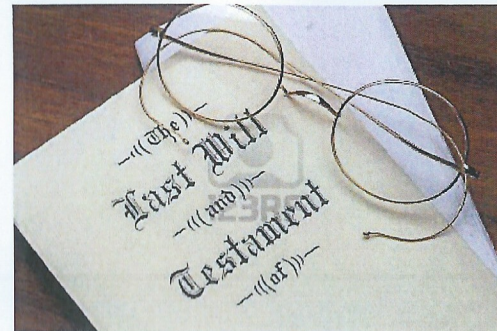 (The)
Last Will
(and)
Testament
(of)
123RF